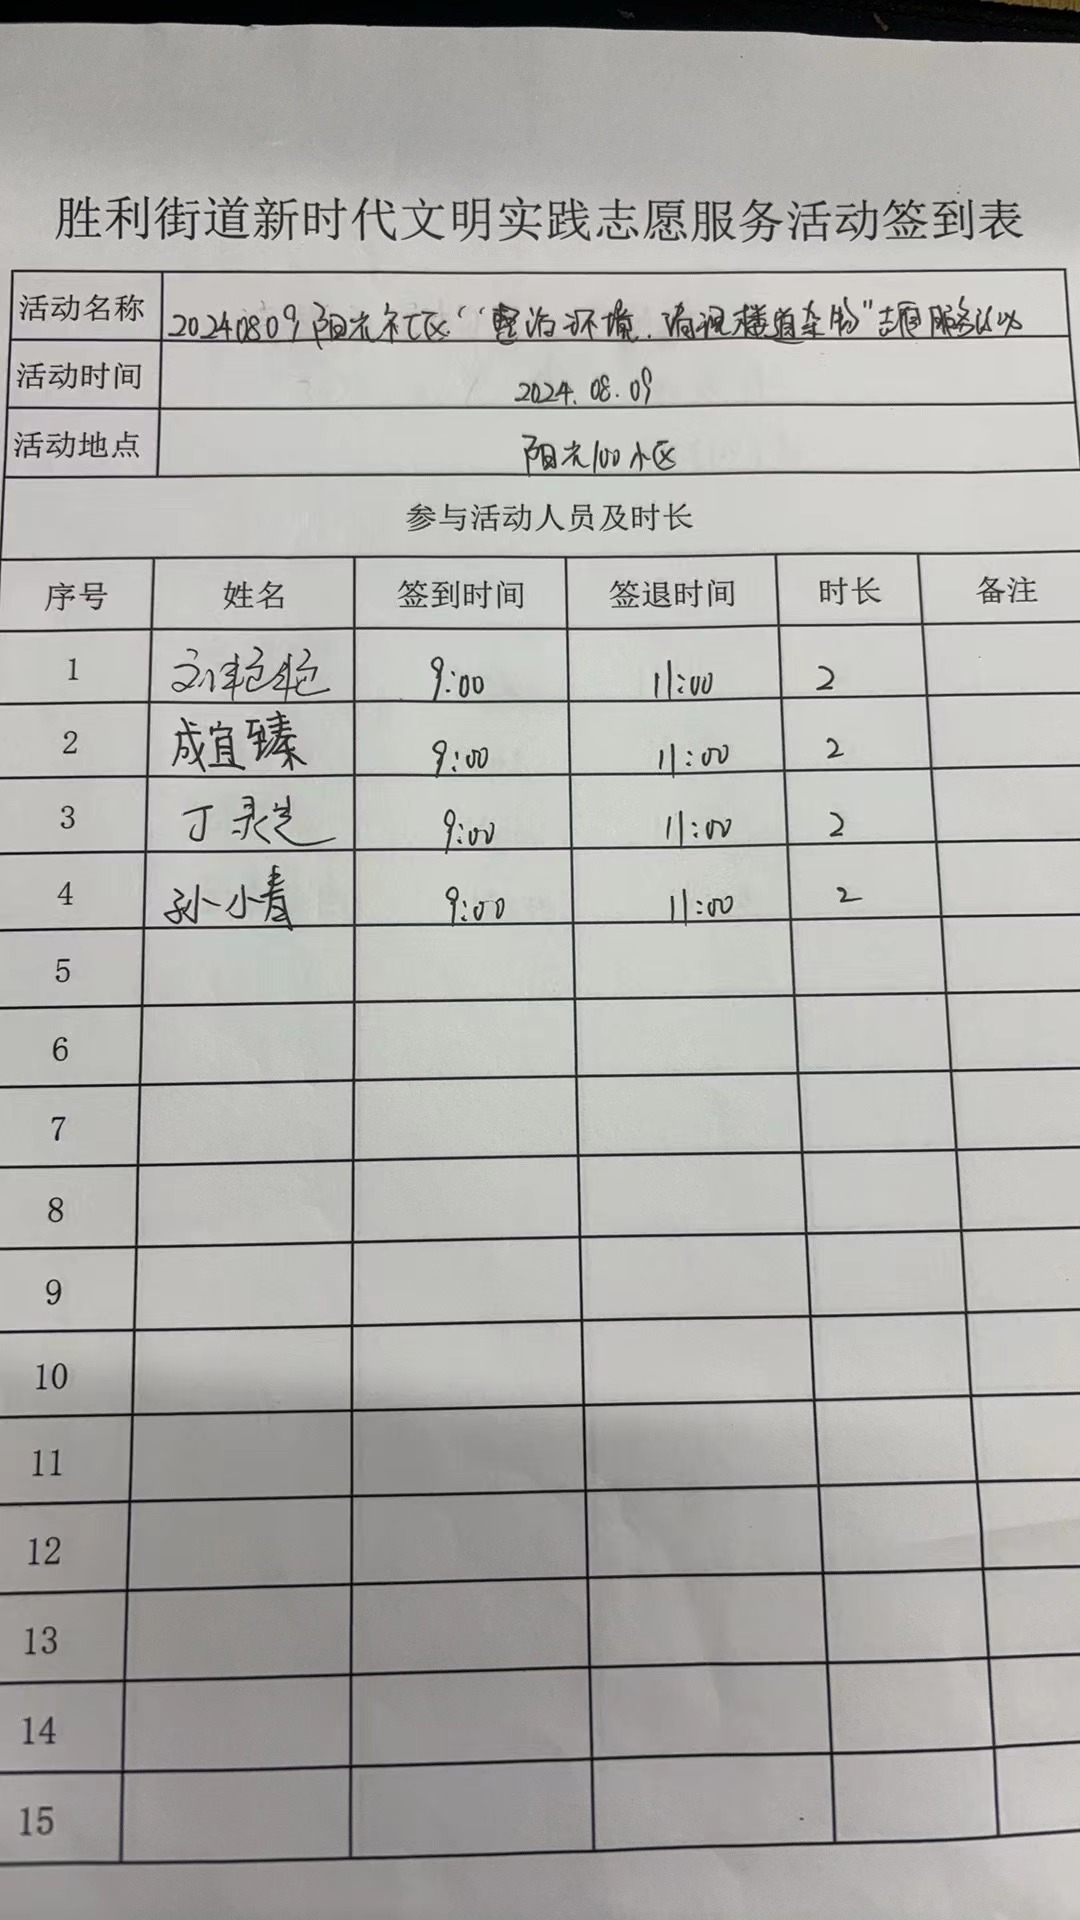 胜利街道新时代文明实践志愿服务活动签到表
活动名称 20240809阳光社区“整治环境.清理楼道杂物”志愿服务活动
活动时间 2024.08.09
活动地点 阳光100小区
参与活动人员及时长
序号 姓名 签到时间 签退时间 时长 备注
1 9:00 11:00 2
2 成宜臻 9:00 11:00 2
3 丁 9:00 11:00 2
4 孙小春 9:00 11:00 2
5
6
7
8
9
10
11
12
13
14
15